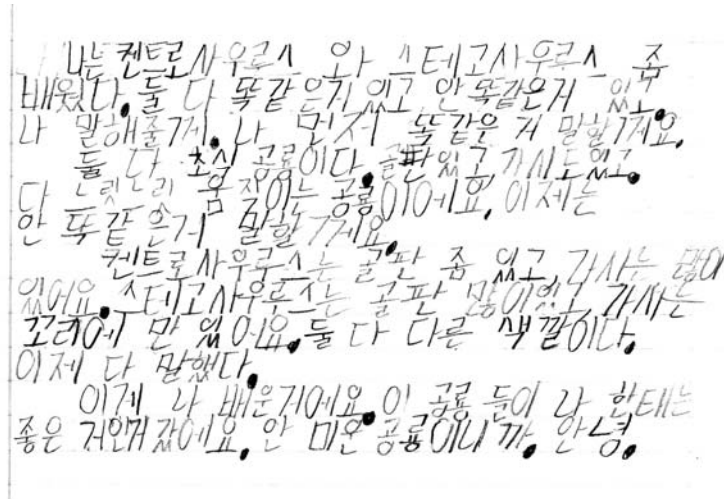 나는 켄트로사우루스 와 스테고사우루스 좀
배웠다. 둘 다 똑같 은거 있고 안 똑같은거 있고.
나 말해줄게. 나 먼저 똑같은 거 말할게요.
둘 다 초식 공룡이다. 골판 있고, 가시도 있고.
다 느릿느릿 움직이는 공룡이에요. 이제는
안 똑같은거 말할게요.
켄트로사우루스는 골판 좀 있고, 가시는 많이
있어요. 스테고사우루스는 골판 많이있고 가사는
꼬리에 만 있어요. 둘 다 다른 색깔이다.
이제 다 말했다.
이게 나 배운거에요. 이 공룡 들이 나 한태는
좋은 거인거 갔에요. 안 미온 공룡이니 까. 안녕.